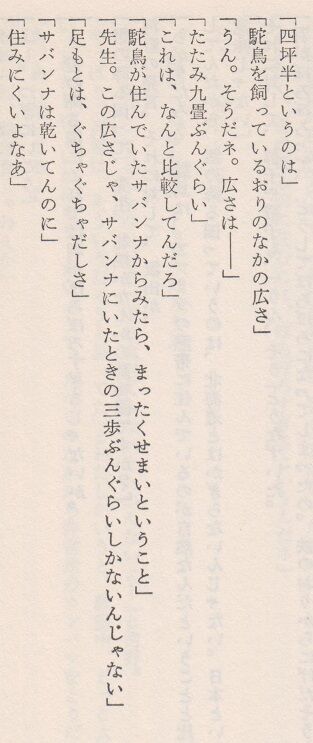 「四坪半というのは」
「駝鳥を飼っているおりのなかの広さ」
「うん。そうだネ。広さは――」
「たたみ九畳ぶんぐらい」
「これは、なんと比較してんだろ」
「駝鳥が住んでいたサバンナからみたら、まったくせまいということ」
「先生。この広さじゃ、サバンナにいたときの三歩ぶんぐらいしかないんじゃない」
「足もとは、ぐちゃぐちゃだしさ」
「サバンナは乾いてんのに」
「住みにくいよなあ」